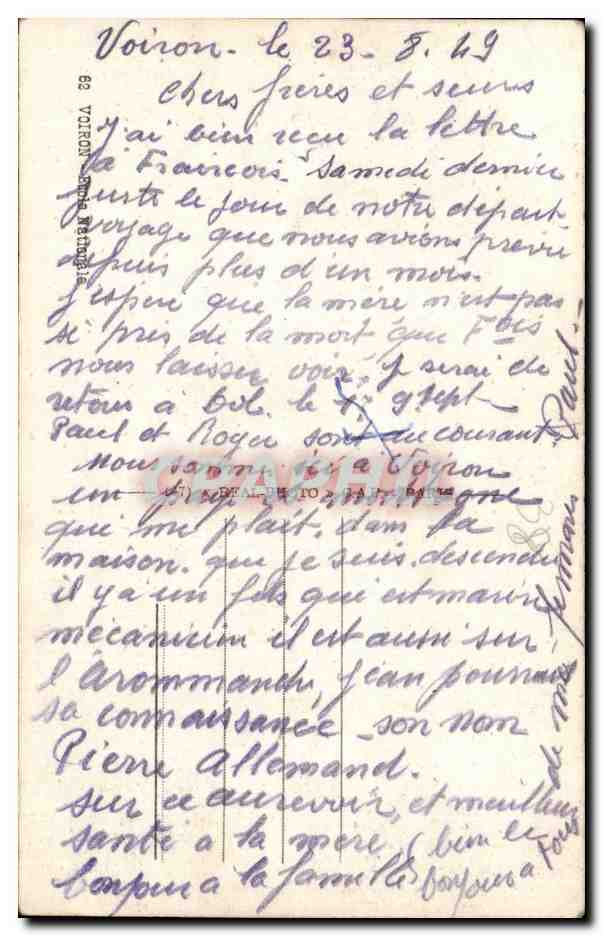 Voiron - le 23 - 8. 49
Chers frères et seurs
J'ai bien recu la lettre
à Francois. Samedi dernier
juste le jour de notre départ
voyage que nous avions prévu
depuis plus d'un mois.
J'espère que la mère n'est pas
si près de la mort que Fois
nous laisser voir, je serai de
retour à le 9 sept
Paul et Roger sont au courant.
Nous sommes ici a Voiron
un pays
qui me plait. dans la
maison. que je suis. descendu
il y a un fils qui est marin
mécanicien il est aussi sur
l'Arommanche, Jean pourrait
sa connaissance - son nom
Pierre Allemand.
sur ce aurevoir, et meilleur
santé a la mère, (bien le
bonjour a la famille bonjour a
Tous de mes Paul.
62 VOIRON - Ecole Nationale
« REAL-PHOTO » C.A.P. - PARIS
CRAPHIL